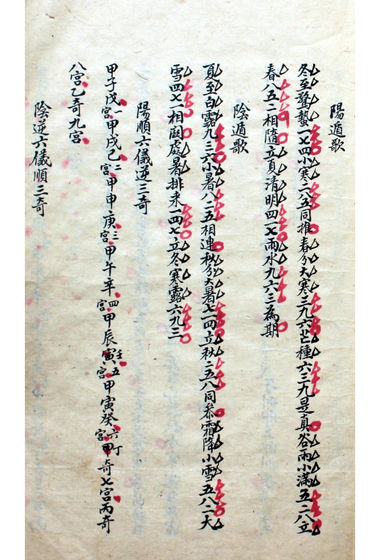 陽遁歌
冬至驚蟄一七四小寒二八五同推春分大寒三九六芒種六三九是真谷雨小滿五二八立
春八五二相隨立夏清明四一七雨水九六三為期
陰遁歌
夏至白露九三六小暑八二五相連秋分大暑七一四立秋二五八同參霜降小雪五八二大
雪四七一相關處暑排來一四七立冬寒露六九三
陽順六儀逆三奇
甲子戊一宮甲戌己二宮甲申庚三宮甲午辛四宮甲辰壬五宮甲寅癸六宮丁奇七宮丙奇
八宮乙奇九宮
陰逆六儀順三奇